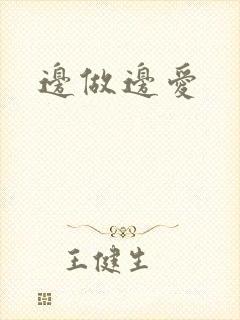 邊做邊愛
王健生